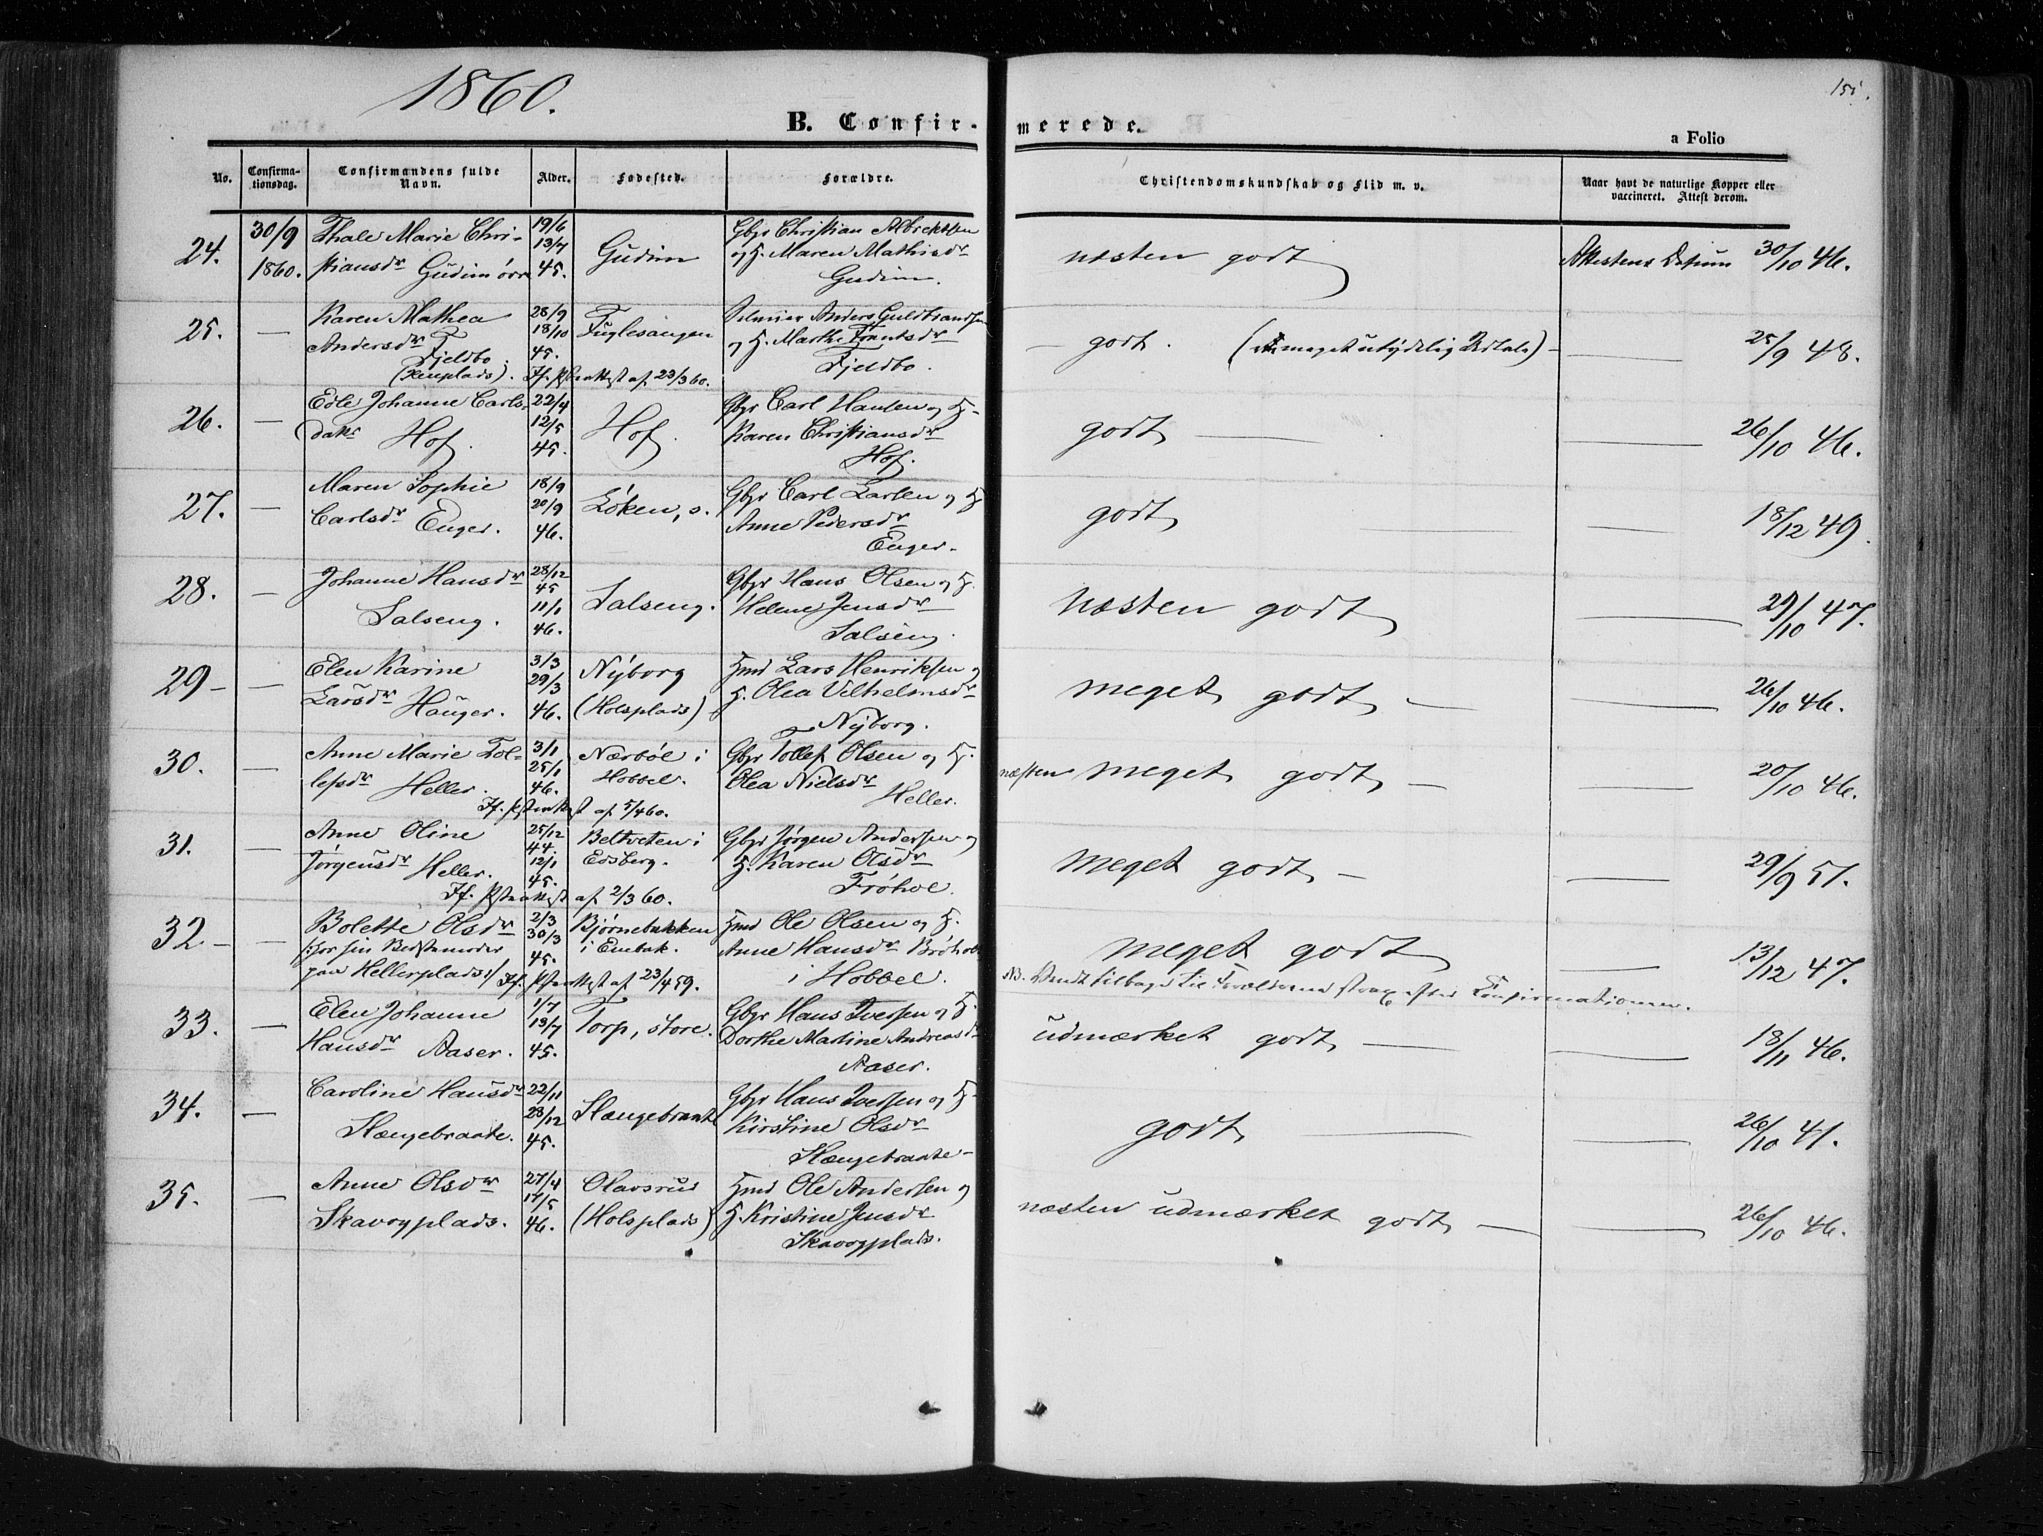 1860.
155.
B. Confirmerede.
a Folio
No. Confirmationsdag. Confirmandens fulde Navn. Alder. Fødested. Forældre. Christendomskundskab og Flid m. v. Naar havt de naturlige Kopper eller vaccineret. Attest derom.
24. 30/9 1860. Thale Marie Christiansdr Gudim øvre 19/6 13/7 45. Gudim Gbgr Christian Albrektsen og H. Maren Mathisdr Gudim. næsten godt Attestens Datum 30/10 46.
25. — Karen Mathea Andersdr Fjeldbo (Kenplads). 28/9 18/10 45. Fuglesangen Selveier Anders Guldbrandsen og H. Marthe Frantsdr Fjeldbo. — godt. (meget utydelig Udtale) — 25/9 48.
If. Pstrattest af 23/3 60.
26. — Edle Johanne Carlsdatr Hof. 22/4 12/5 45. Hof. Gbgr Carl Hansen og H. Karen Christiansdr Hof. godt — 26/10 46.
27. — Maren Sophie Carlsdr Enger. 18/9 20/9 46. Løken, s. Gbgr Carl Larsen og H Anne Pedersdr Enger. godt — 18/12 49.
28. — Johanne Hansdr Salseng. 28/12 45 11/1 46. Salseng. Gbgr Hans Olsen og H. Helene Jensdr Salseng. næsten godt — 29/10 47.
29 — Elen Karine Larsdr Hauger. 3/3 29/3 46. Nyborg (Holsplads) Hmd Lars Henriksen og H. Olea Vilhelmsdr Nyborg. meget godt — 26/10 46.
30. — Anne Marie Tollefsdr Heller. 3/1 25/1 46. Nærbøl i Hobbel. Gbgr Tollef Olsen og H. Olea Nielsdr Heller. næsten meget godt — 20/10 46.
If. Pstrattest af 5/4 60.
31. — Anne Oline Jørgensdr Heller. 25/12 44. 12/1 45. Beltveten i Edsberg. Gbgr Jørgen Andersen og H. Karen Olsdr Frøhol. meget godt — 29/9 51.
If. Pstrattest af 2/3 60.
32. — Bolette Olsdr (: for sin Bedstemoder paa Hellerplads :) 2/3 30/3 45. Bjørnebakken i Enebak. Hmd Ole Olsen og H. Anne Hansdr Brøholt i Hobbel. meget godt — 13/12 47.
If. Pstrattest af 23/4 59.
NB. Vendt tilbage til Forældrene strax efter Confirmationen.
33. — Elen Johanne Hansdr Aaser. 1/7 13/7 45. Torp, store. Gbgr Hans Iversen og H. Dorthe Martine Andreasdr Aaser. udmærket godt — 18/11 46.
34. — Caroline Hansdr Slængebraate. 22/11 28/12 45. Slængebraate Gbgr Hans Iversen og H. Kirstine Olsdr Slængebraate — godt — 26/10 41.
35. — Anne Olsdr Skavogplads. 27/4 17/5 46. Olavsrud (Holsplads) Hmd Ole Andersen og H. Kristine Jensdr Skavogplads. næsten udmærket godt — 26/10 46.